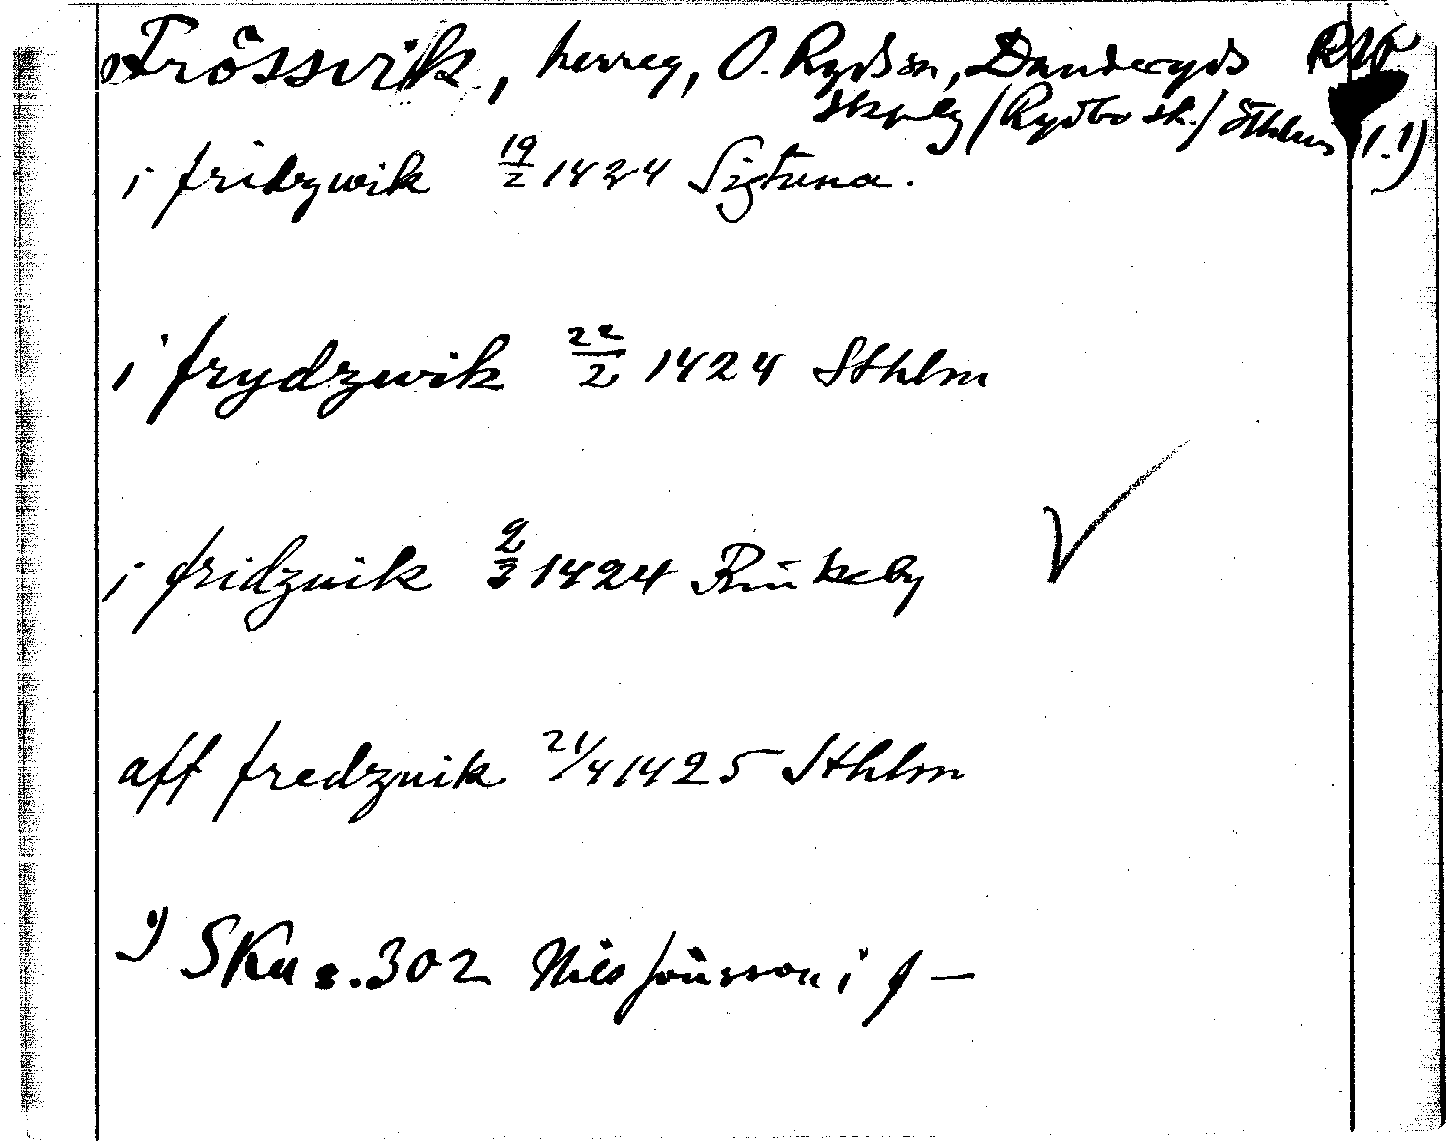 Frössvik, herreg, Ö. Ryds sn, Danderyds
Skeplg /Rydbo sk./ Sthlms (1.1)
i fridzwik 19/2 1424 Sigtuna.
i frydzwik 22/2 1424 Sthlm
i fridzuik 2/3 1424 Rinkeby
aff fredzuik 21/4 1425 Sthlm
1) Sku s. 302 Nils Jönsson i f —